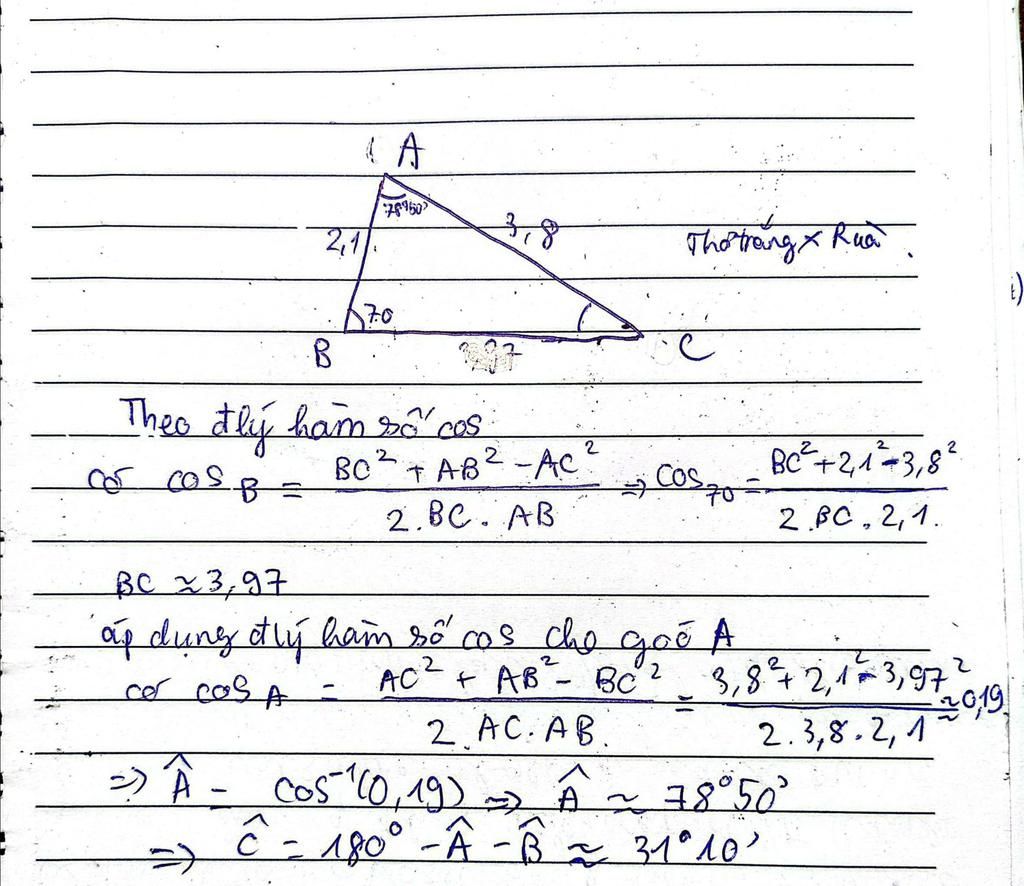 A
78°50'
2,1
3,8
Thỏ trắng x Rùa
70
B
3,97
C
Theo đlý hàm số cos
có cos B = BC² + AB² - AC² / 2.BC.AB => cos 70 = BC² + 2,1² - 3,8² / 2.BC.2,1.
BC ≈ 3,97
áp dụng đlý hàm số cos cho goć A
có cos A = AC² + AB² - BC² / 2.AC.AB. = 3,8² + 2,1² - 3,97² / 2.3,8.2,1 ≈ 0,19
=> Â = cos⁻¹(0,19) => Â ≈ 78°50'
=> Ĉ = 180° - Â - B̂ ≈ 31°10'